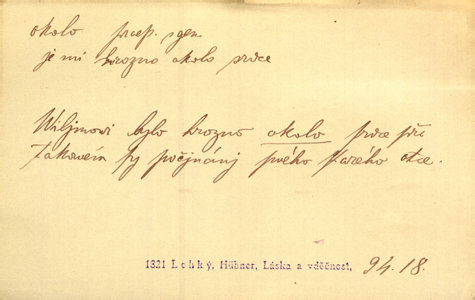 okolo praep. s gen
je mi hrozno okolo srdce
Wilímowi bylo hrozno okolo srdce při
takowém počjnánj swého starého otce.
1821 Lehký, Hübner, Láska a vděčnost, 94.18.